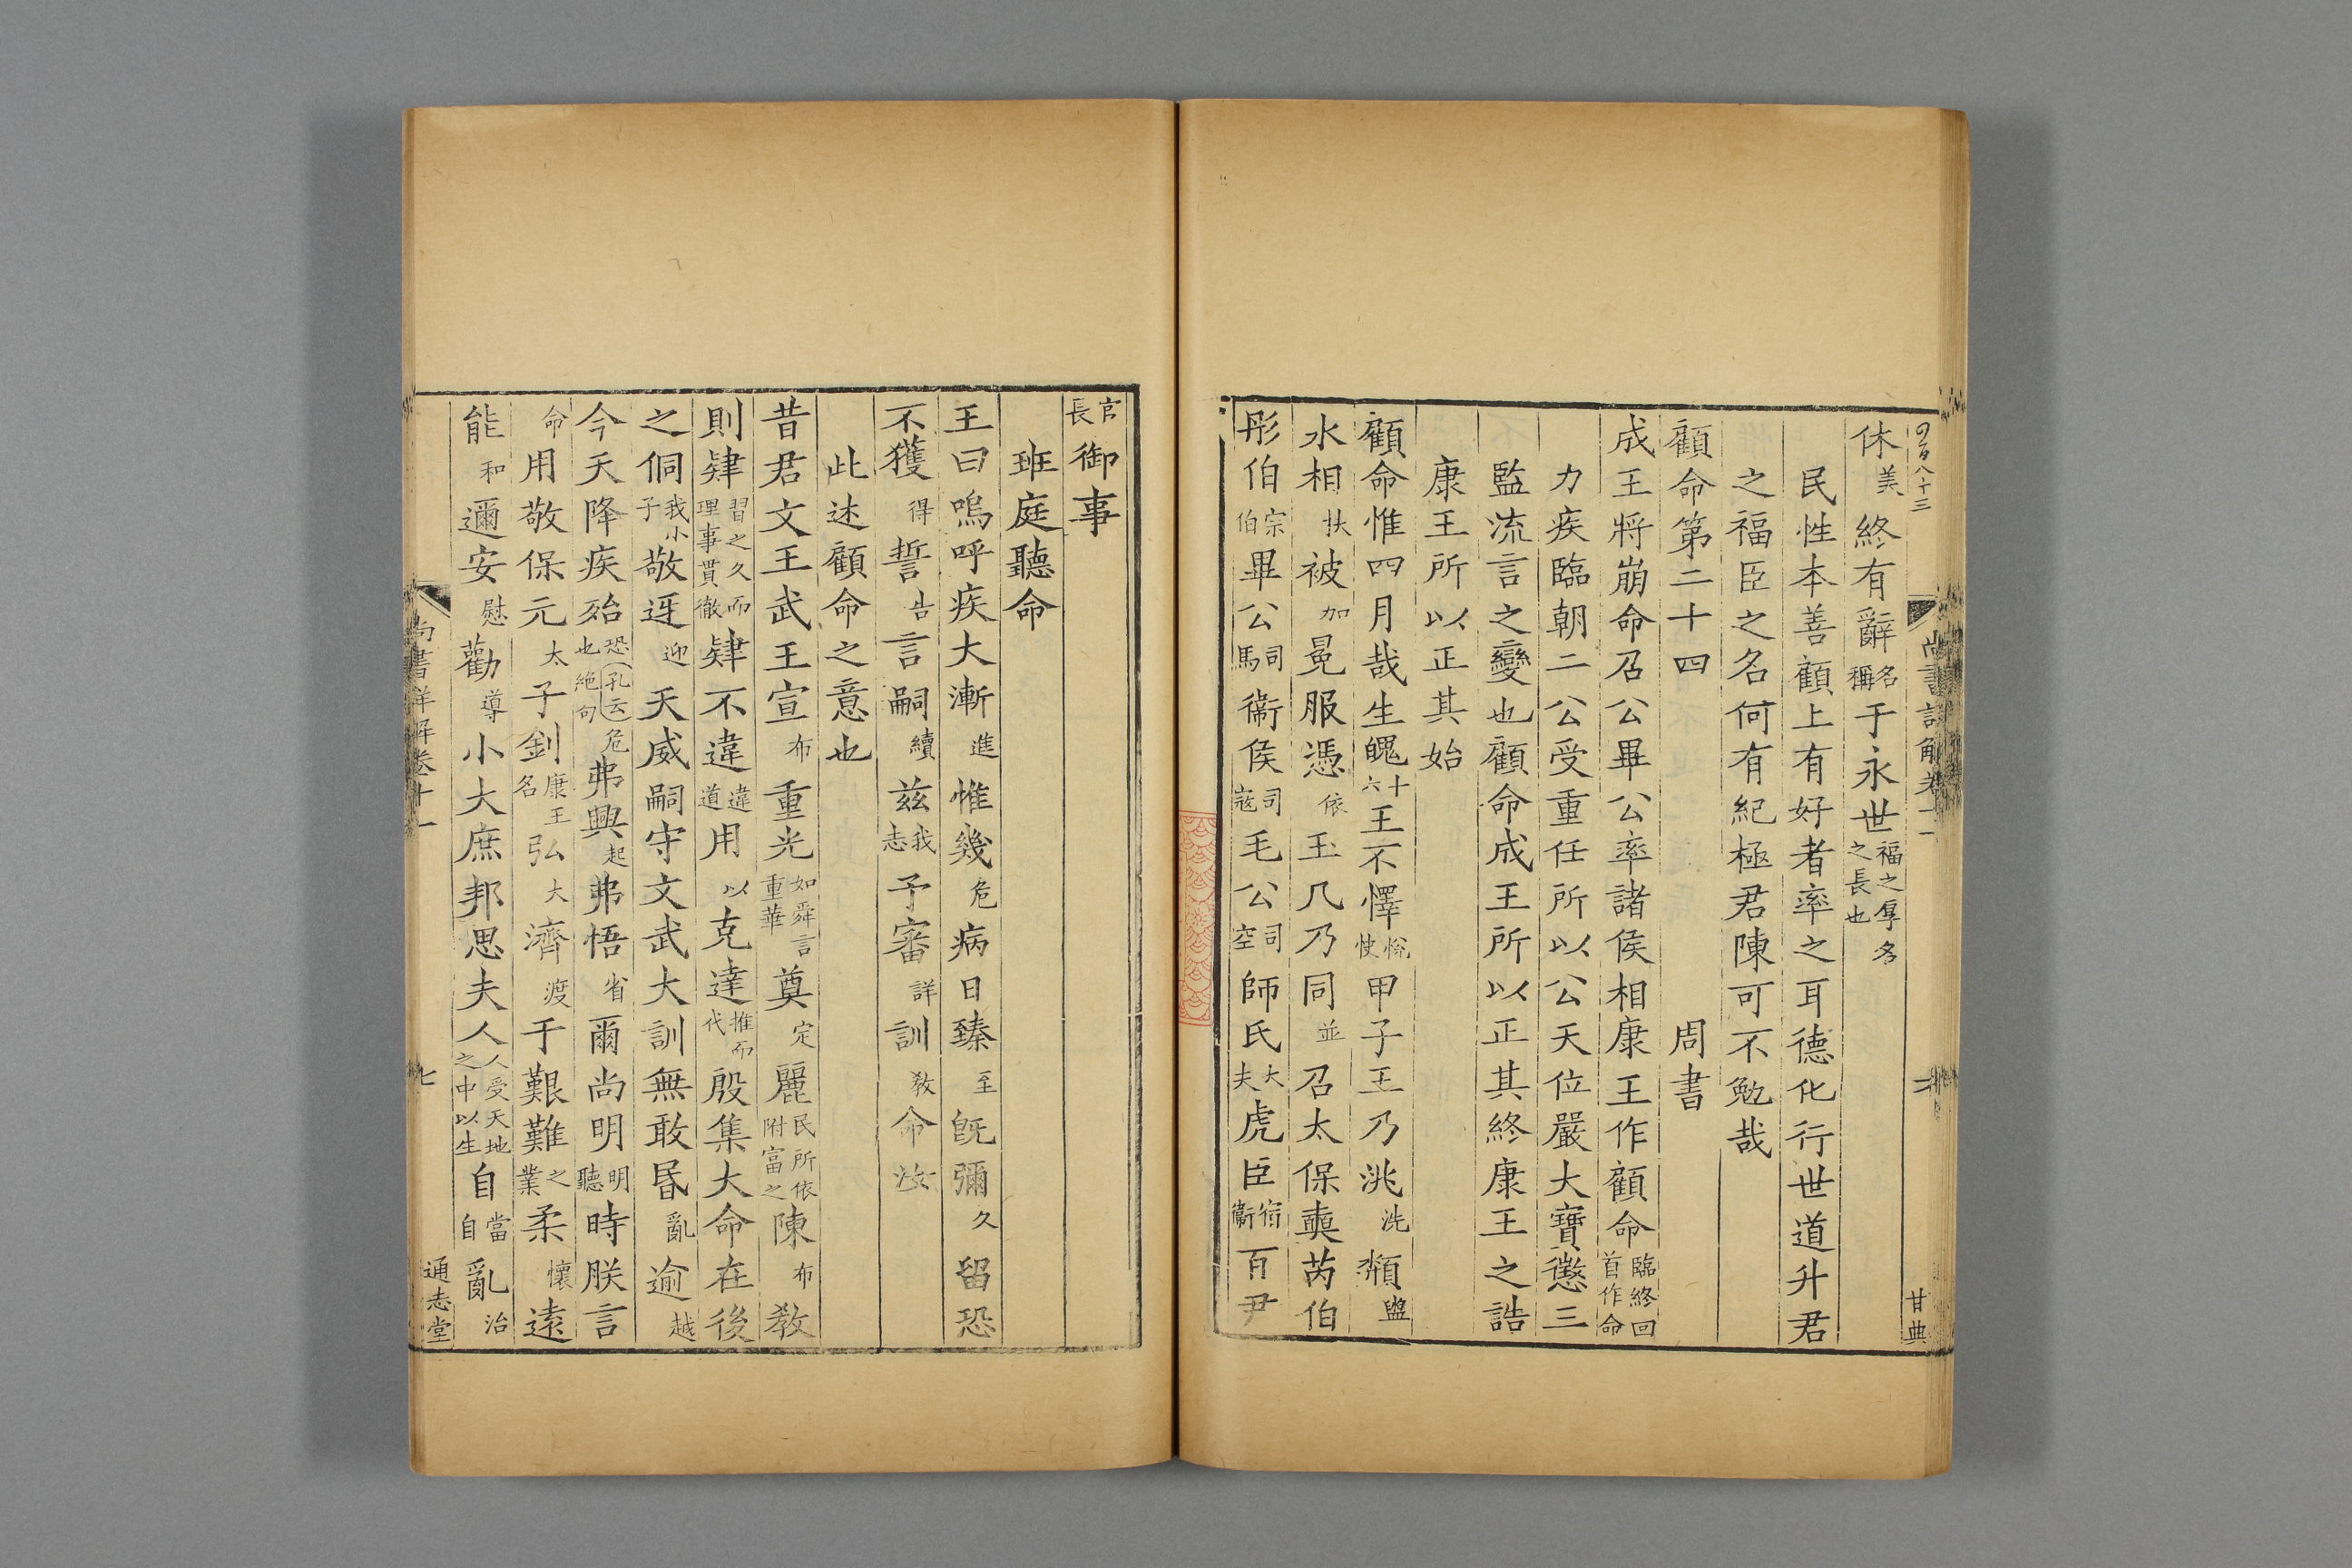 休美終有辭名稱于永世福之厚名之長也
民性本善顧上有好者率之耳德化行世道升君
之福臣之名何有紀極君陳可不勉哉
顧命第二十四 周書
成王將崩命召公畢公率諸侯相康王作顧命臨終回首作命
力疾臨朝二公受重任所以公天位嚴大寶懲三
監流言之變也顧命成王所以正其終康王之誥
康王所以正其始
顧命惟四月哉生魄十六王不懌悅懌甲子王乃洮洗頮盥
水相扶被加冕服憑依玉几乃同並召太保奭芮伯
彤伯宗伯畢公司馬衞侯司寇毛公司空師氏大夫虎臣宿衞百尹
官長御事
班庭聽命
王曰嗚呼疾大漸進惟幾危病日臻至旣彌久留恐
不獲得誓告言嗣續茲我志予審詳訓敎命汝
此述顧命之意也
昔君文王武王宣布重光如舜言重華奠定麗民所依附富之陳布敎
則肄習之久而理事貫徹肄不違違道用以克達推而代殷集大命在後
之侗我小子敬迓迎天威嗣守文武大訓無敢昬亂逾越
今天降疾殆恐(孔云)危也絶句弗興起弗悟省爾尚明明聽時朕言
命用敬保元太子釗康王名弘大濟渡于艱難之業柔懷遠
能和邇安慰勸導小大庶邦思夫人人受天地之中以生自當自亂治
尚書詳解卷十一
七
通志堂